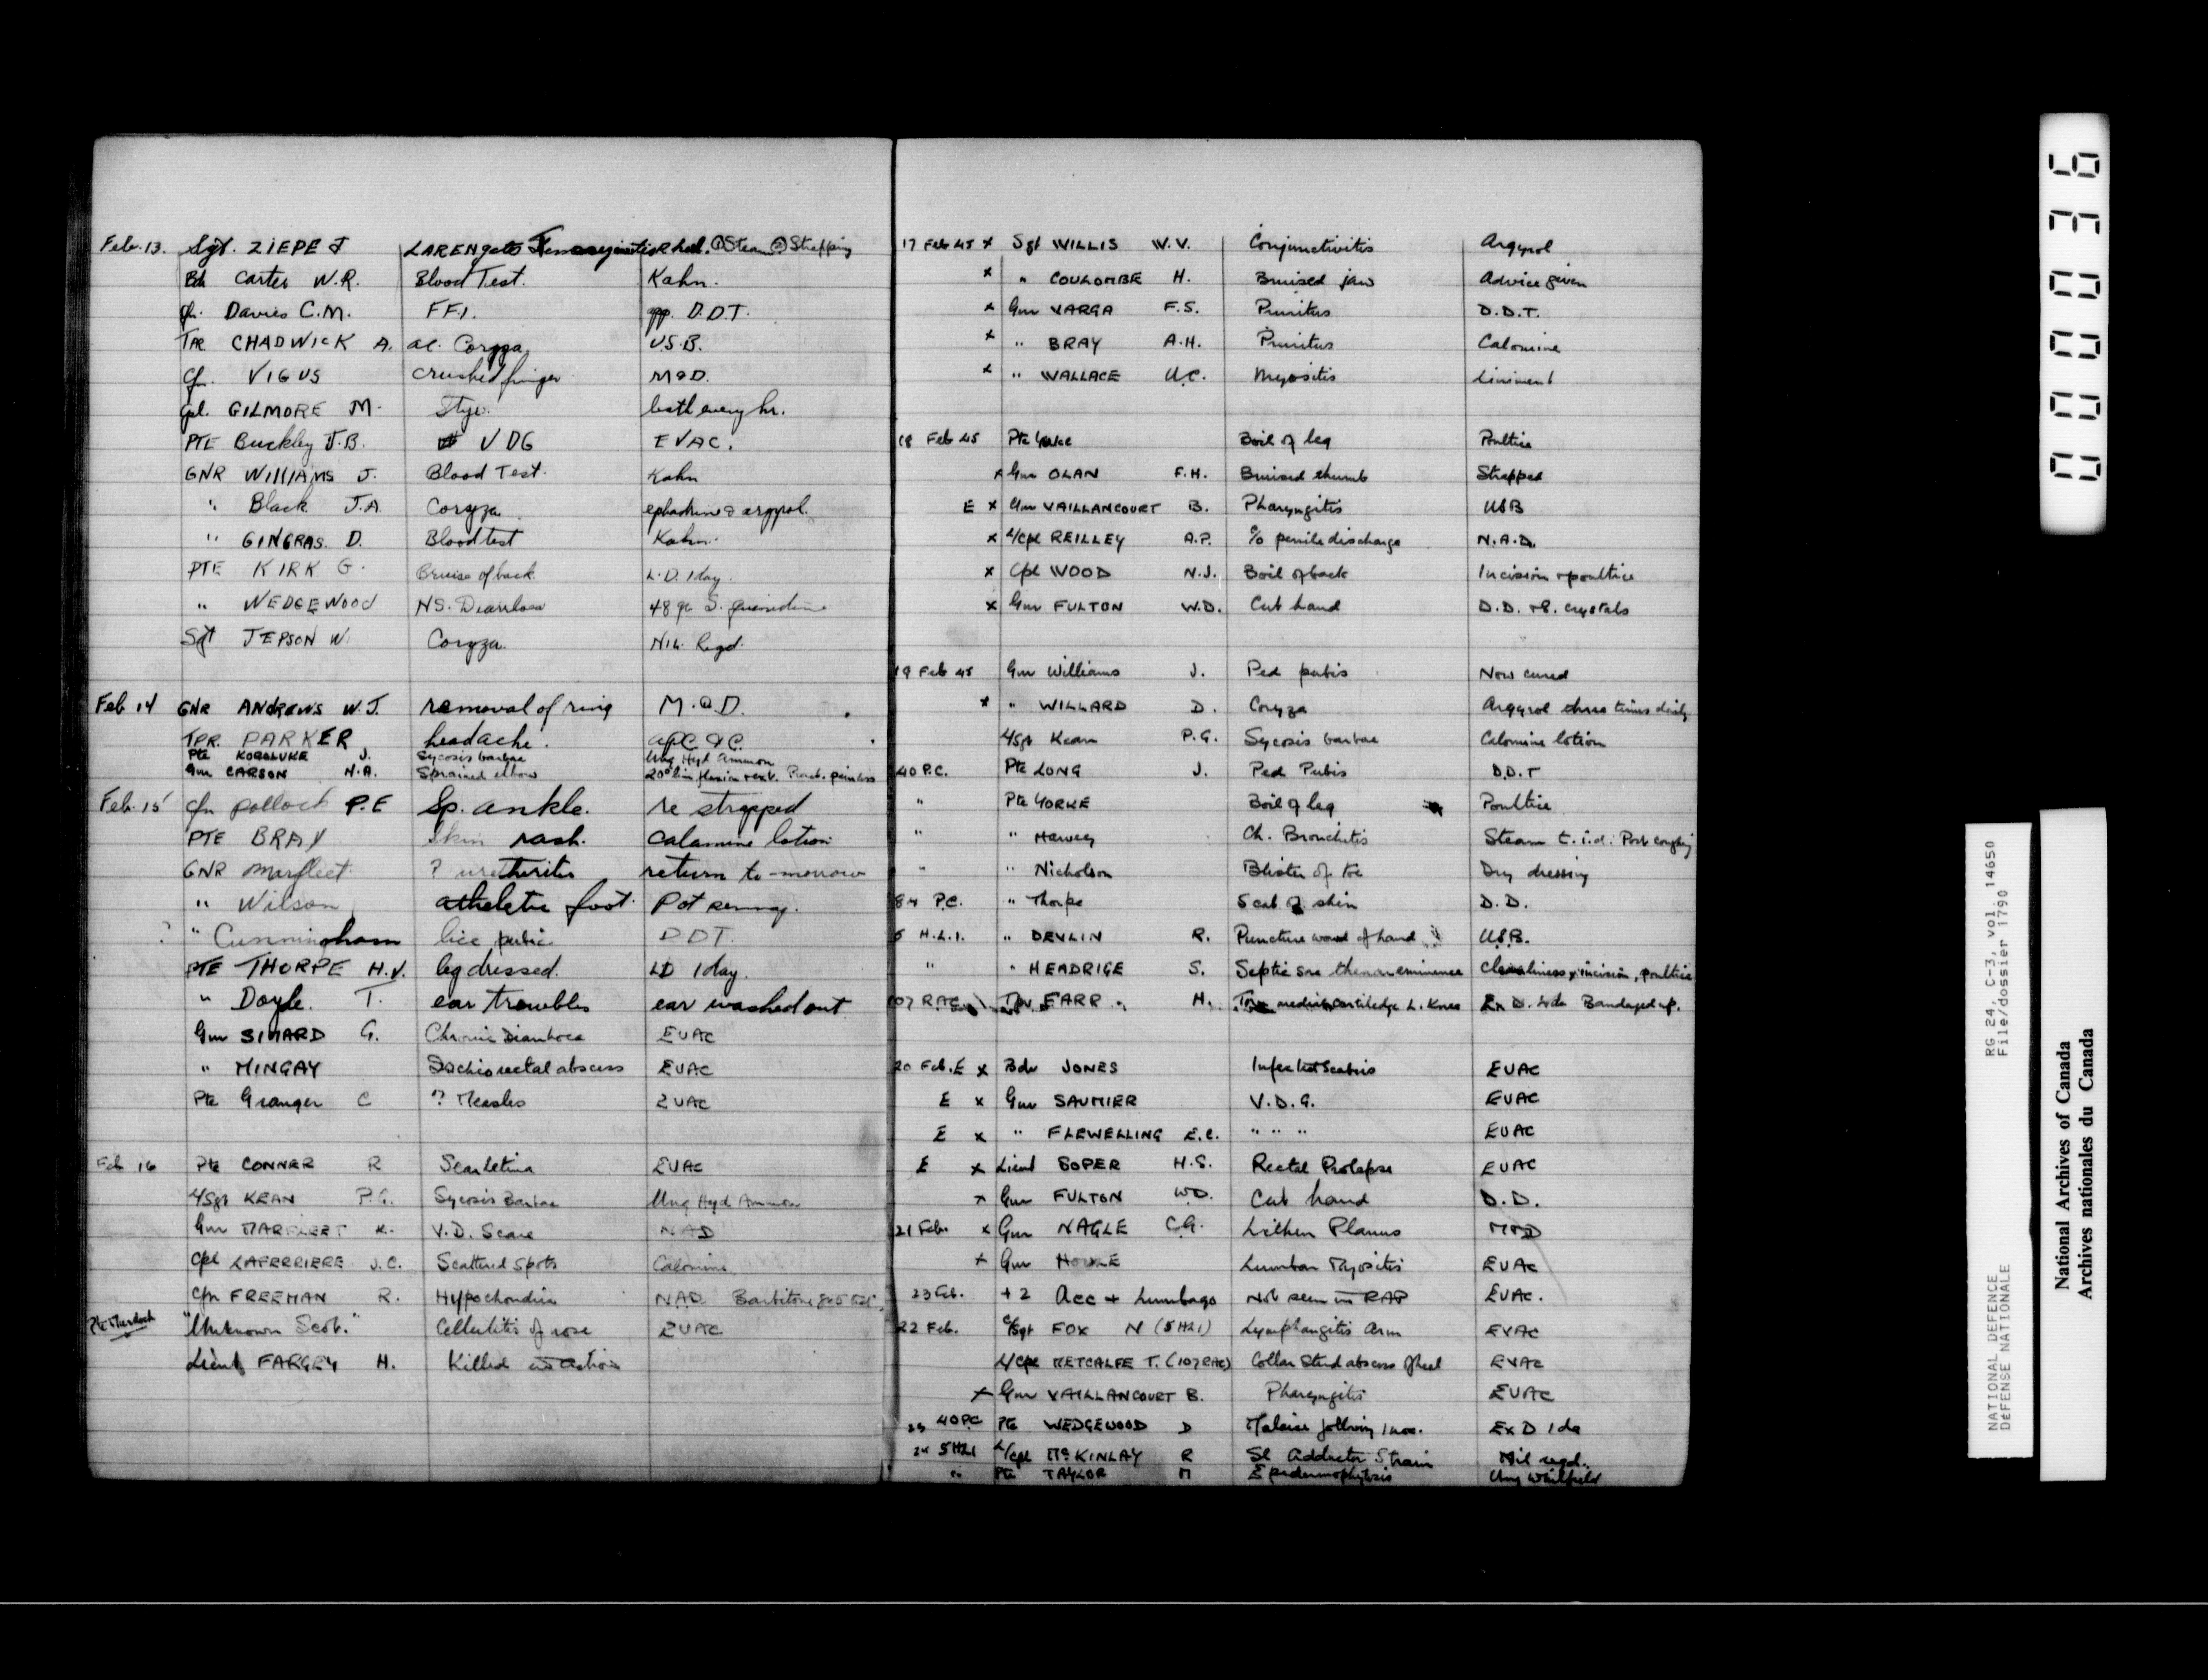 Feb. 13. Sgt. ZIEPE J LARENgets R heel. ① Steam ② Strapping
Carter W.R. Blood Test. Kahn.
Davies C.M. FF.I. app. D.D.T.
Tpr CHADWICK A. ac. Coryza U.S.B.
Cfn. VIGUS crushed finger M&D.
Cpl. GILMORE M. Stye. bath every hr.
PTE Buckley J.B. VDG EVAC.
GNR WILLIAMS J. Blood Test. Kahn
" Black J.A. Coryza ephedrine & argyrol.
" GINGRAS. D. Blood test Kahn.
PTE KIRK G. Bruise of back L.D. 1 day.
" WEDGEWOOD NS. Diarrhoea 48 gr S.
Sgt JEPSON W. Coryza. Nil. Reqd.
Feb 14 GNR ANDREWS W.J. removal of ring M.&D.
TPR. PARKER headache. apc &C.
Pte KOROLUKE J. Sycosis barbae Ung Hyd Ammon
Gnr CARSON H.A. Sprained elbow 20° lim flexion + ext. painless
Feb. 15 Cfn pollock P.E Sp. ankle. re strapped
PTE BRAY Skin rash. Calamine lotion
GNR Marfleet ? urethritis return to-morrow
" Wilson atheletic foot. Pot permag.
? " Cunningham lice pubic DDT.
PTE THORPE H.V. leg dressed. LD 1 day.
" Doyle. T. ear troubles ear washed out
Gnr SIMARD G. Chronic Diarrhoea EVAC
" MINGAY Ischiorectal abscess EVAC
Pte Granger C ? Measles EVAC
Feb 16 Pte CONNER R Scarletina EVAC
L/Sgt KEAN P.G. Sycosis Barbae Ung Hyd Ammon
Gnr MARFLEET K. V.D. Scare NAD
Cpl LAFERRIERE J.C. Scattered spots Calamine
Cfn FREEMAN R. Hypochondria NAD Barbitone
Pte Murdoch "Unknown Scot." Cellulitis of nose EVAC
Lieut FARGEY H. Killed in action
17 Feb 45 x Sgt WILLIS W.V. Conjunctivitis Argyrol
x " COULOMBE H. Bruised jaw Advice given
x Gnr VARGA F.S. Pruritus D.D.T.
x " BRAY A.H. Pruritus Calomine
x " WALLACE U.C. Myositis Liniment
18 Feb 45 Pte Yorke Boil of leg Poultice
x Gnr OLAN F.H. Bruised thumb Strapped
E x Gnr VAILLANCOURT B. Pharyngitis USB
x L/Cpl REILLEY A.P. c/o penile discharge N.A.D.
x Cpl WOOD N.J. Boil of back Incision + poultice
x Gnr FULTON W.D. Cut hand D.D. + S. crystals
19 Feb 45 Gnr Williams J. Ped pubis Now cured
x " WILLARD D. Coryza Argyrol three times daily
L/Sgt Kean P.G. Sycosis barbae Calomine lotion
40 P.C. Pte LONG J. Ped Pubis D.D.T
" Pte YORKE Boil of leg Poultice
" " Harvey Ch. Bronchitis Steam t.i.d.
" " Nicholson Blister of toe Dry dressing
84 P.C. " Thorpe Scab of shin D.D.
5 H.L.I. " DEVLIN R. Puncture wound of hand U.S.B.
" " HEADRIGE S. Septic sore thenar eminence Cleanliness, incision, poultice
107 RAC. Tpr EARP. H. medial cartiledge L. Knee Ex D. Bandaged up.
20 Feb. E x Bdr JONES Infected Scabies EVAC
E x Gnr SAUMIER V.D.G. EVAC
E x " FLEWELLING E.C. " " " EVAC
E x Lieut SOPER H.S. Rectal Prolapse EVAC
x Gnr FULTON W.D. Cut hand D.D.
21 Feb. x Gnr NAGLE C.G. Lichen Planus M+D
x Gnr HOULE Lumbar Myositis EVAC
23 Feb. +2 Acc + Lumbago Not seen in RAP EVAC.
22 Feb. C/Sgt FOX N (5 HLI) Lymphangitis Arm EVAC
L/Cpl METCALFE T. (107 RAC) Collar Stud abscess of heel EVAC
x Gnr VAILLANCOURT B. Pharyngitis EVAC
40 P.C. Pte WEDGEWOOD D Malaise following Inoc. Ex D 1 da
24 5 HLI L/Cpl McKINLAY R Sl Adductor Strain Nil reqd.
" Pte TAYLOR M Epidermophytosis Ung Whitfield
000036
RG 24, C-3, vol. 14650
File/dossier 1790
NATIONAL DEFENCE
DEFENSE NATIONALE
National Archives of Canada
Archives nationales du Canada